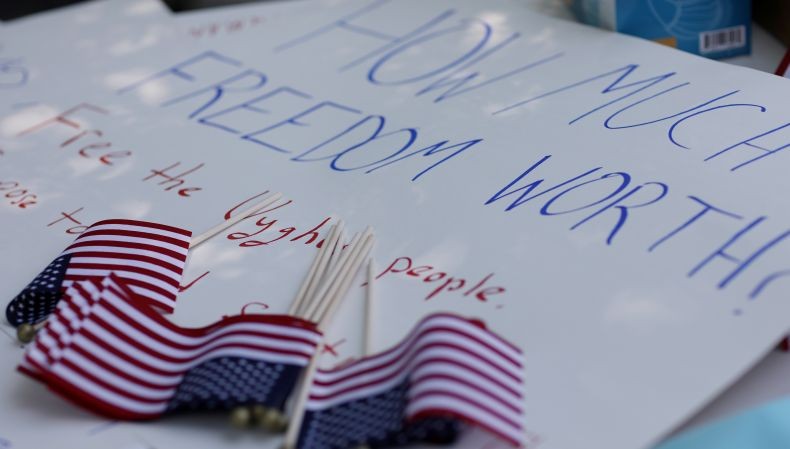 HOW MUCH
FREEDOM WORTH?
Free the Uyghur people.
to